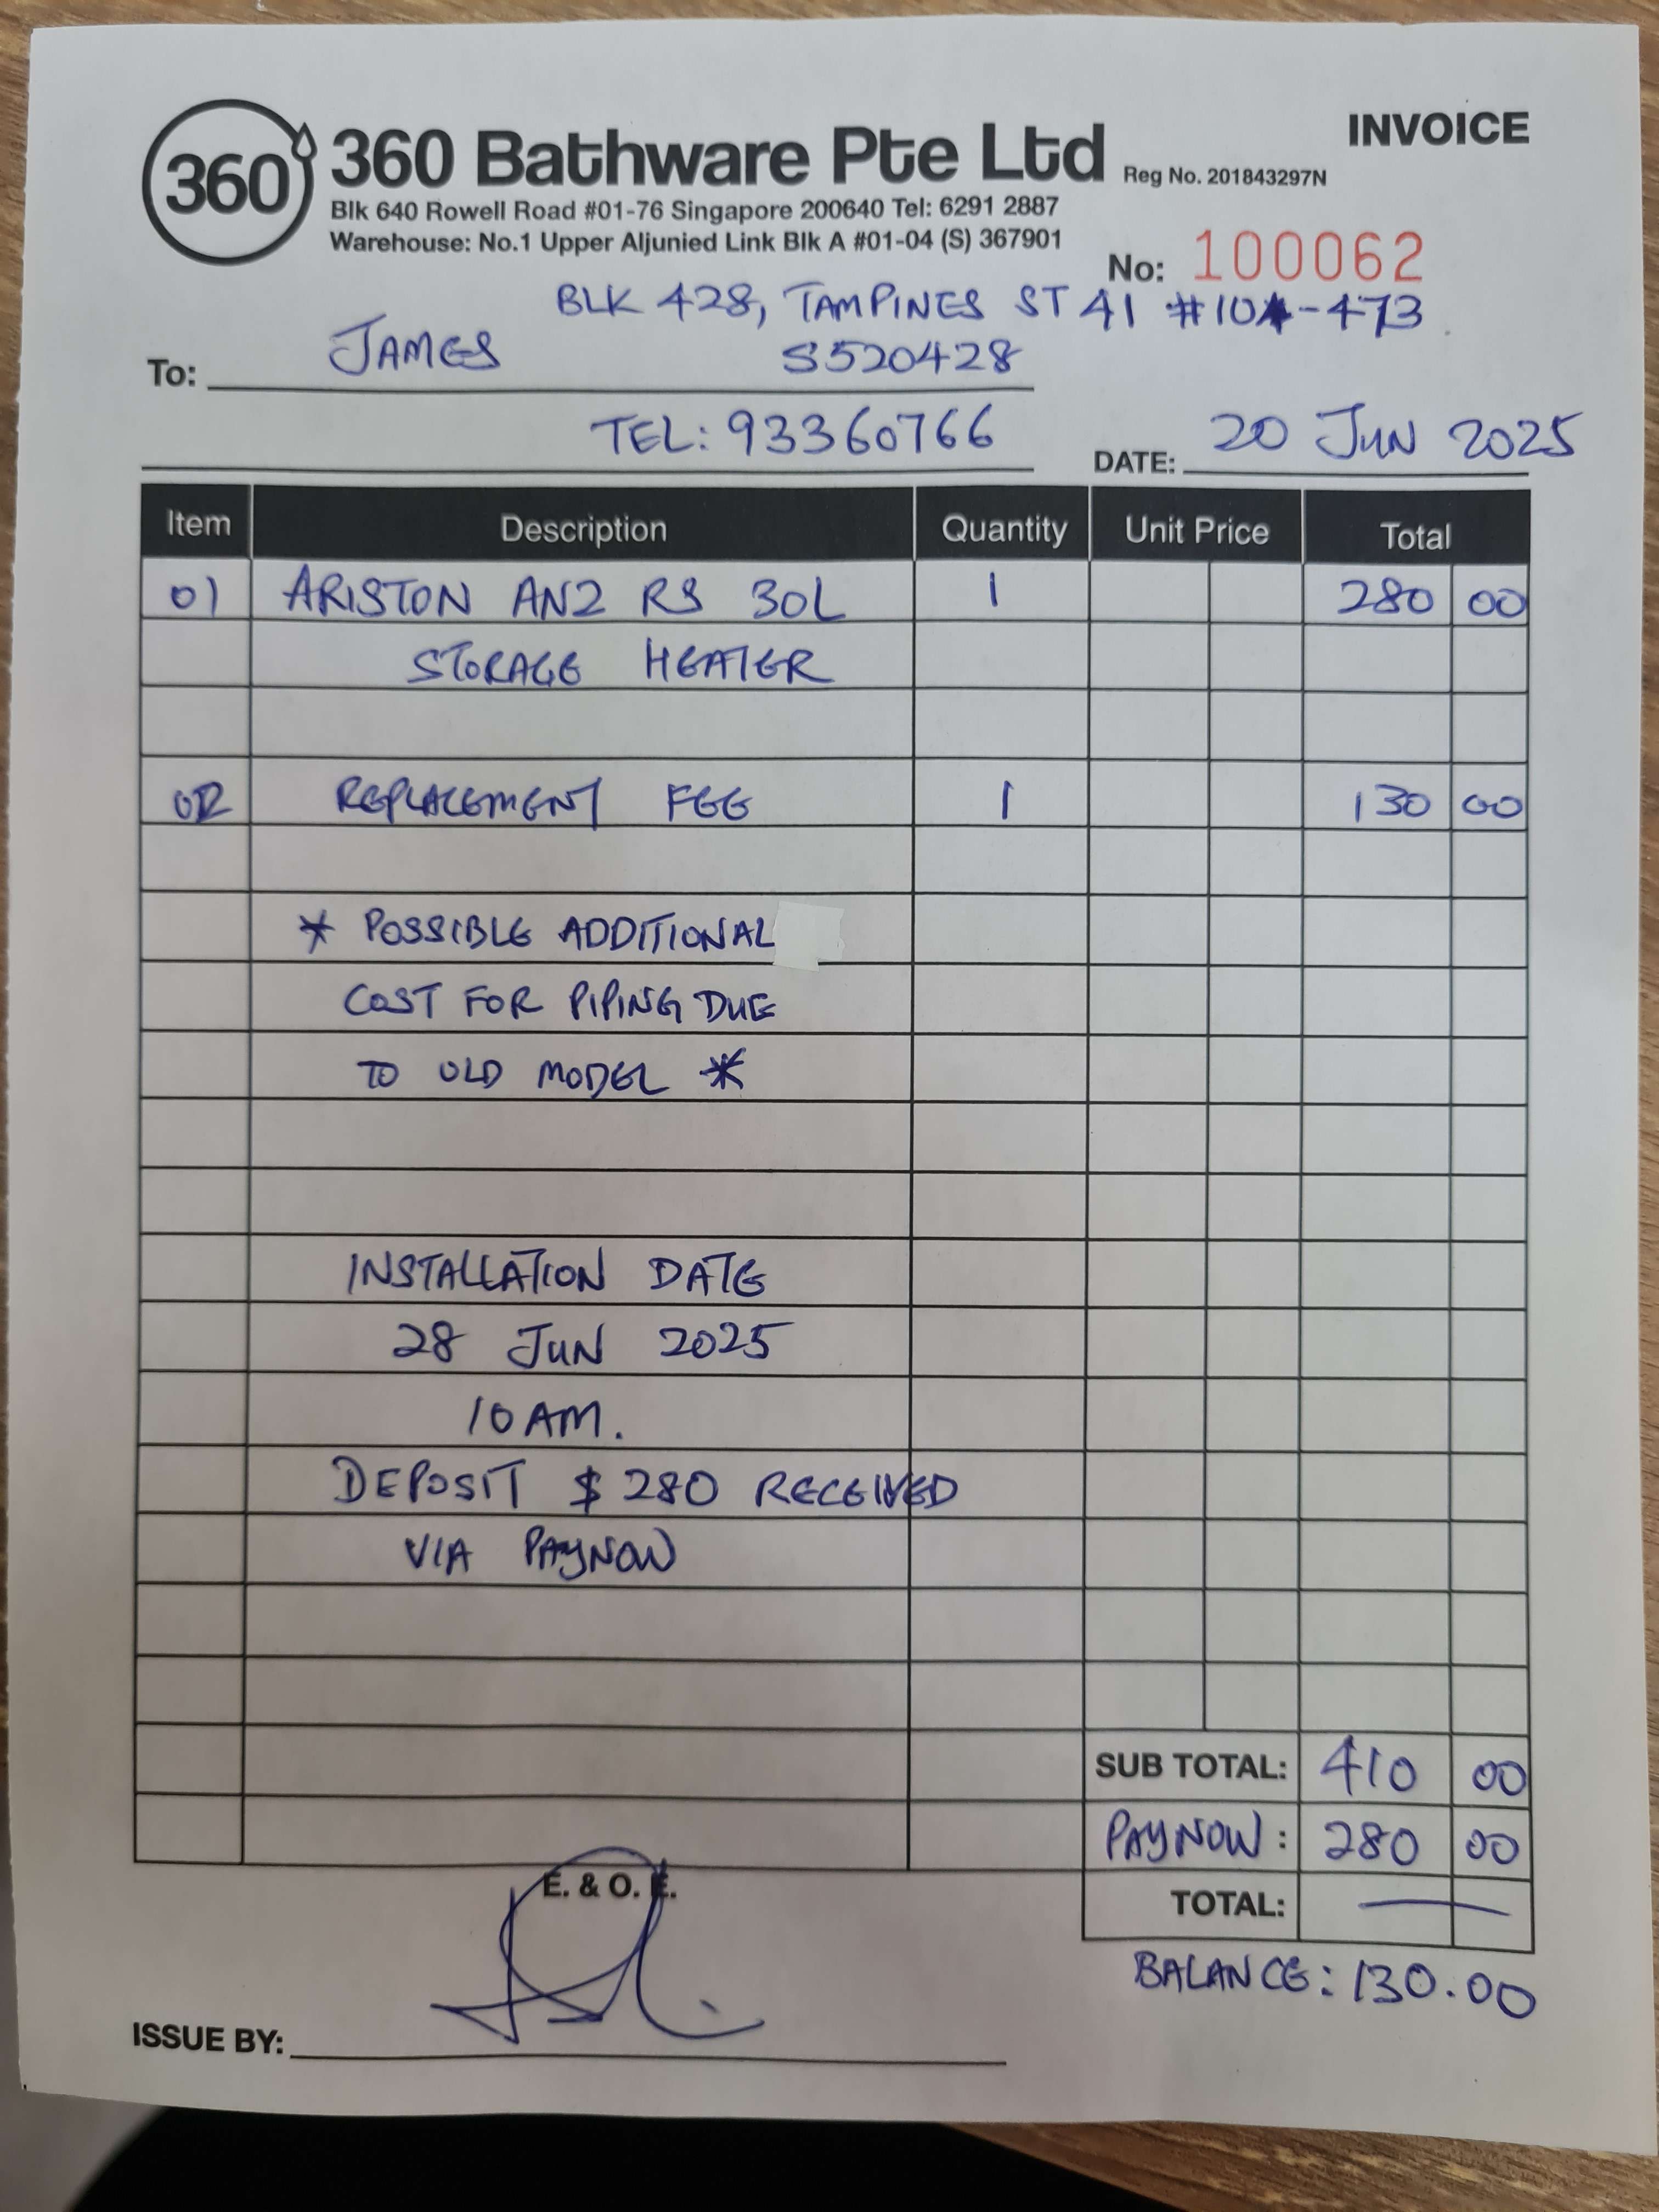 INVOICE
360
360 Bathware Pte Ltd Reg No. 201843297N
Blk 640 Rowell Road #01-76 Singapore 200640 Tel: 6291 2887
Warehouse: No.1 Upper Aljunied Link Blk A #01-04 (S) 367901
No: 100062
BLK 428, TAMPINES ST 41
To: JAMES S520428
TEL: 93360766
DATE: 20 JUN 2025
Item Description Quantity Unit Price Total
01 ARISTON AN2 RS 30L 1 280 00
STORAGE HEATER
02 REPLACEMENT FEE 1 130 00
* POSSIBLE ADDITIONAL
COST FOR PIPING DUE
TO OLD MODEL *
INSTALLATION DATE
28 JUN 2025
10 AM.
DEPOSIT $ 280 RECEIVED
VIA PAYNOW
SUB TOTAL: 410 00
PAYNOW: 280 00
E. & O. E.
TOTAL: —
BALANCE: 130.00
ISSUE BY: